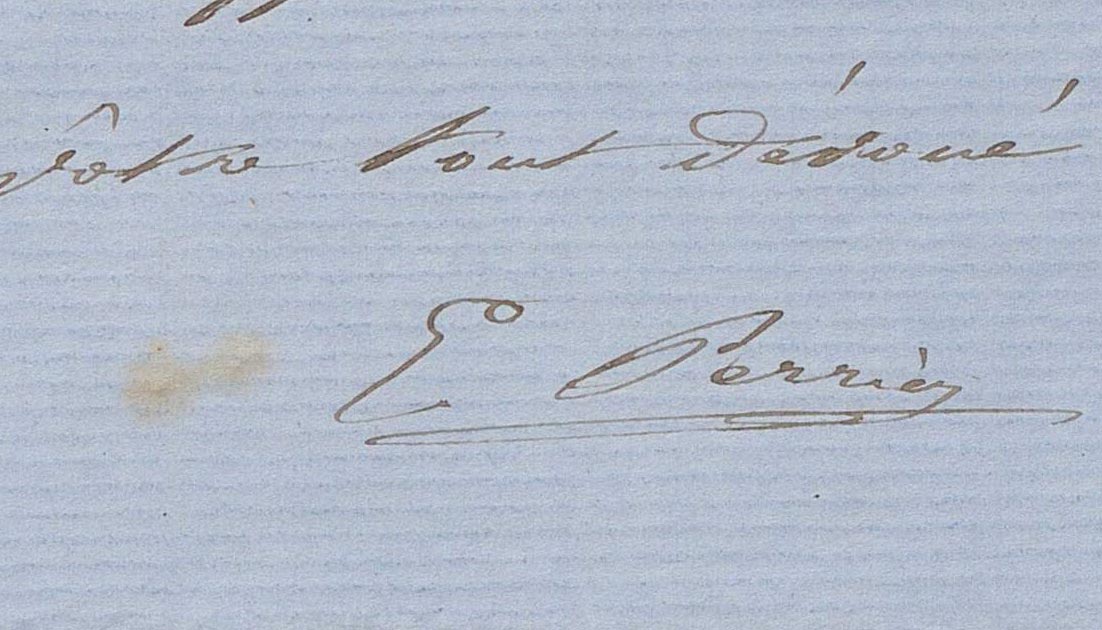 vôtre tout dévoué
E. Perrier